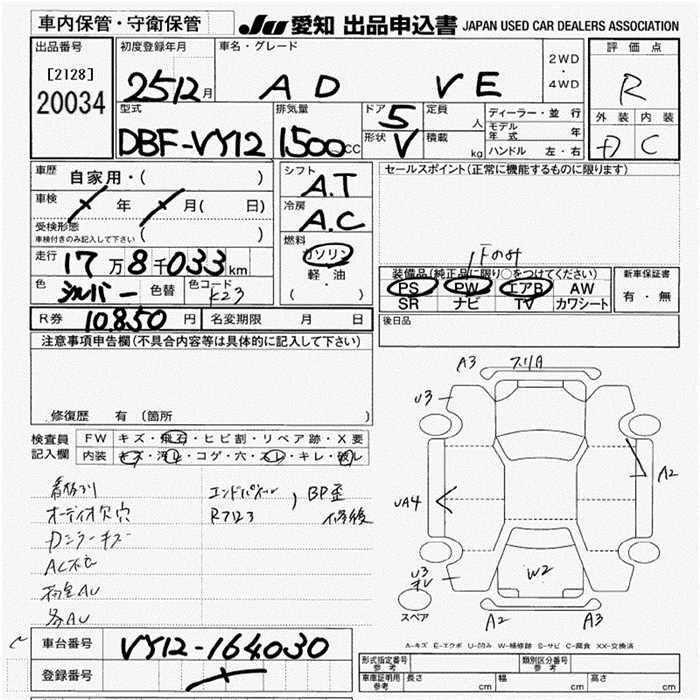 車内保管・守衛保管 JU 愛知 出品申込書 JAPAN USED CAR DEALERS ASSOCIATION
出品番号
[2128]
20034
初度登録年月
2512月
車名・グレード
AD VE
2WD
・
4WD
評価点
R
型式
DBF-VY12
排気量
1500cc
ドア 5
形状 V
定員 人
積載 kg
ディーラー・並行
モデル年式 年
ハンドル 左・右
外装 内装
D C
車歴 自家用・( )
車検 年 月( 日)
受検形態
車検付きのみ記入して下さい ( )
走行 17万8千033km
色 シルバー 色替 色コード K23
シフト
A.T
冷房
A.C
燃料
ガソリン
軽・油
( ・ )
セールスポイント(正常に機能するものに限ります)
1Fのみ
装備品(純正品に限り○をつけてください)
PS PW エアB AW
SR ナビ TV カワシート
新車保証書
有・無
R券 10.850円 名変期限 月 日
後日品
注意事項申告欄(不具合内容等は具体的に記入して下さい)
修復歴 有(箇所
検査員記入欄
FW キズ・飛石・ヒビ割・リペア跡・X要
内装 キズ・汚レ・コゲ・穴・スレ・キレ・破レ
エンドパネル
BP歪
オーディオ欠穴
修後
Dミラーキズ
各AU
A3 スリA
U3
A2
UA4
U3
W2
A2 A3
スペア
A-キズ E-エクボ U-凹み W-補修跡 S-サビ C-腐食 XX-交換済
車台番号 VY12-164030
登録番号
型式指定番号
参考
類別区分番号
参考
車庫証明用
参考
長さ cm 幅 cm 高さ cm